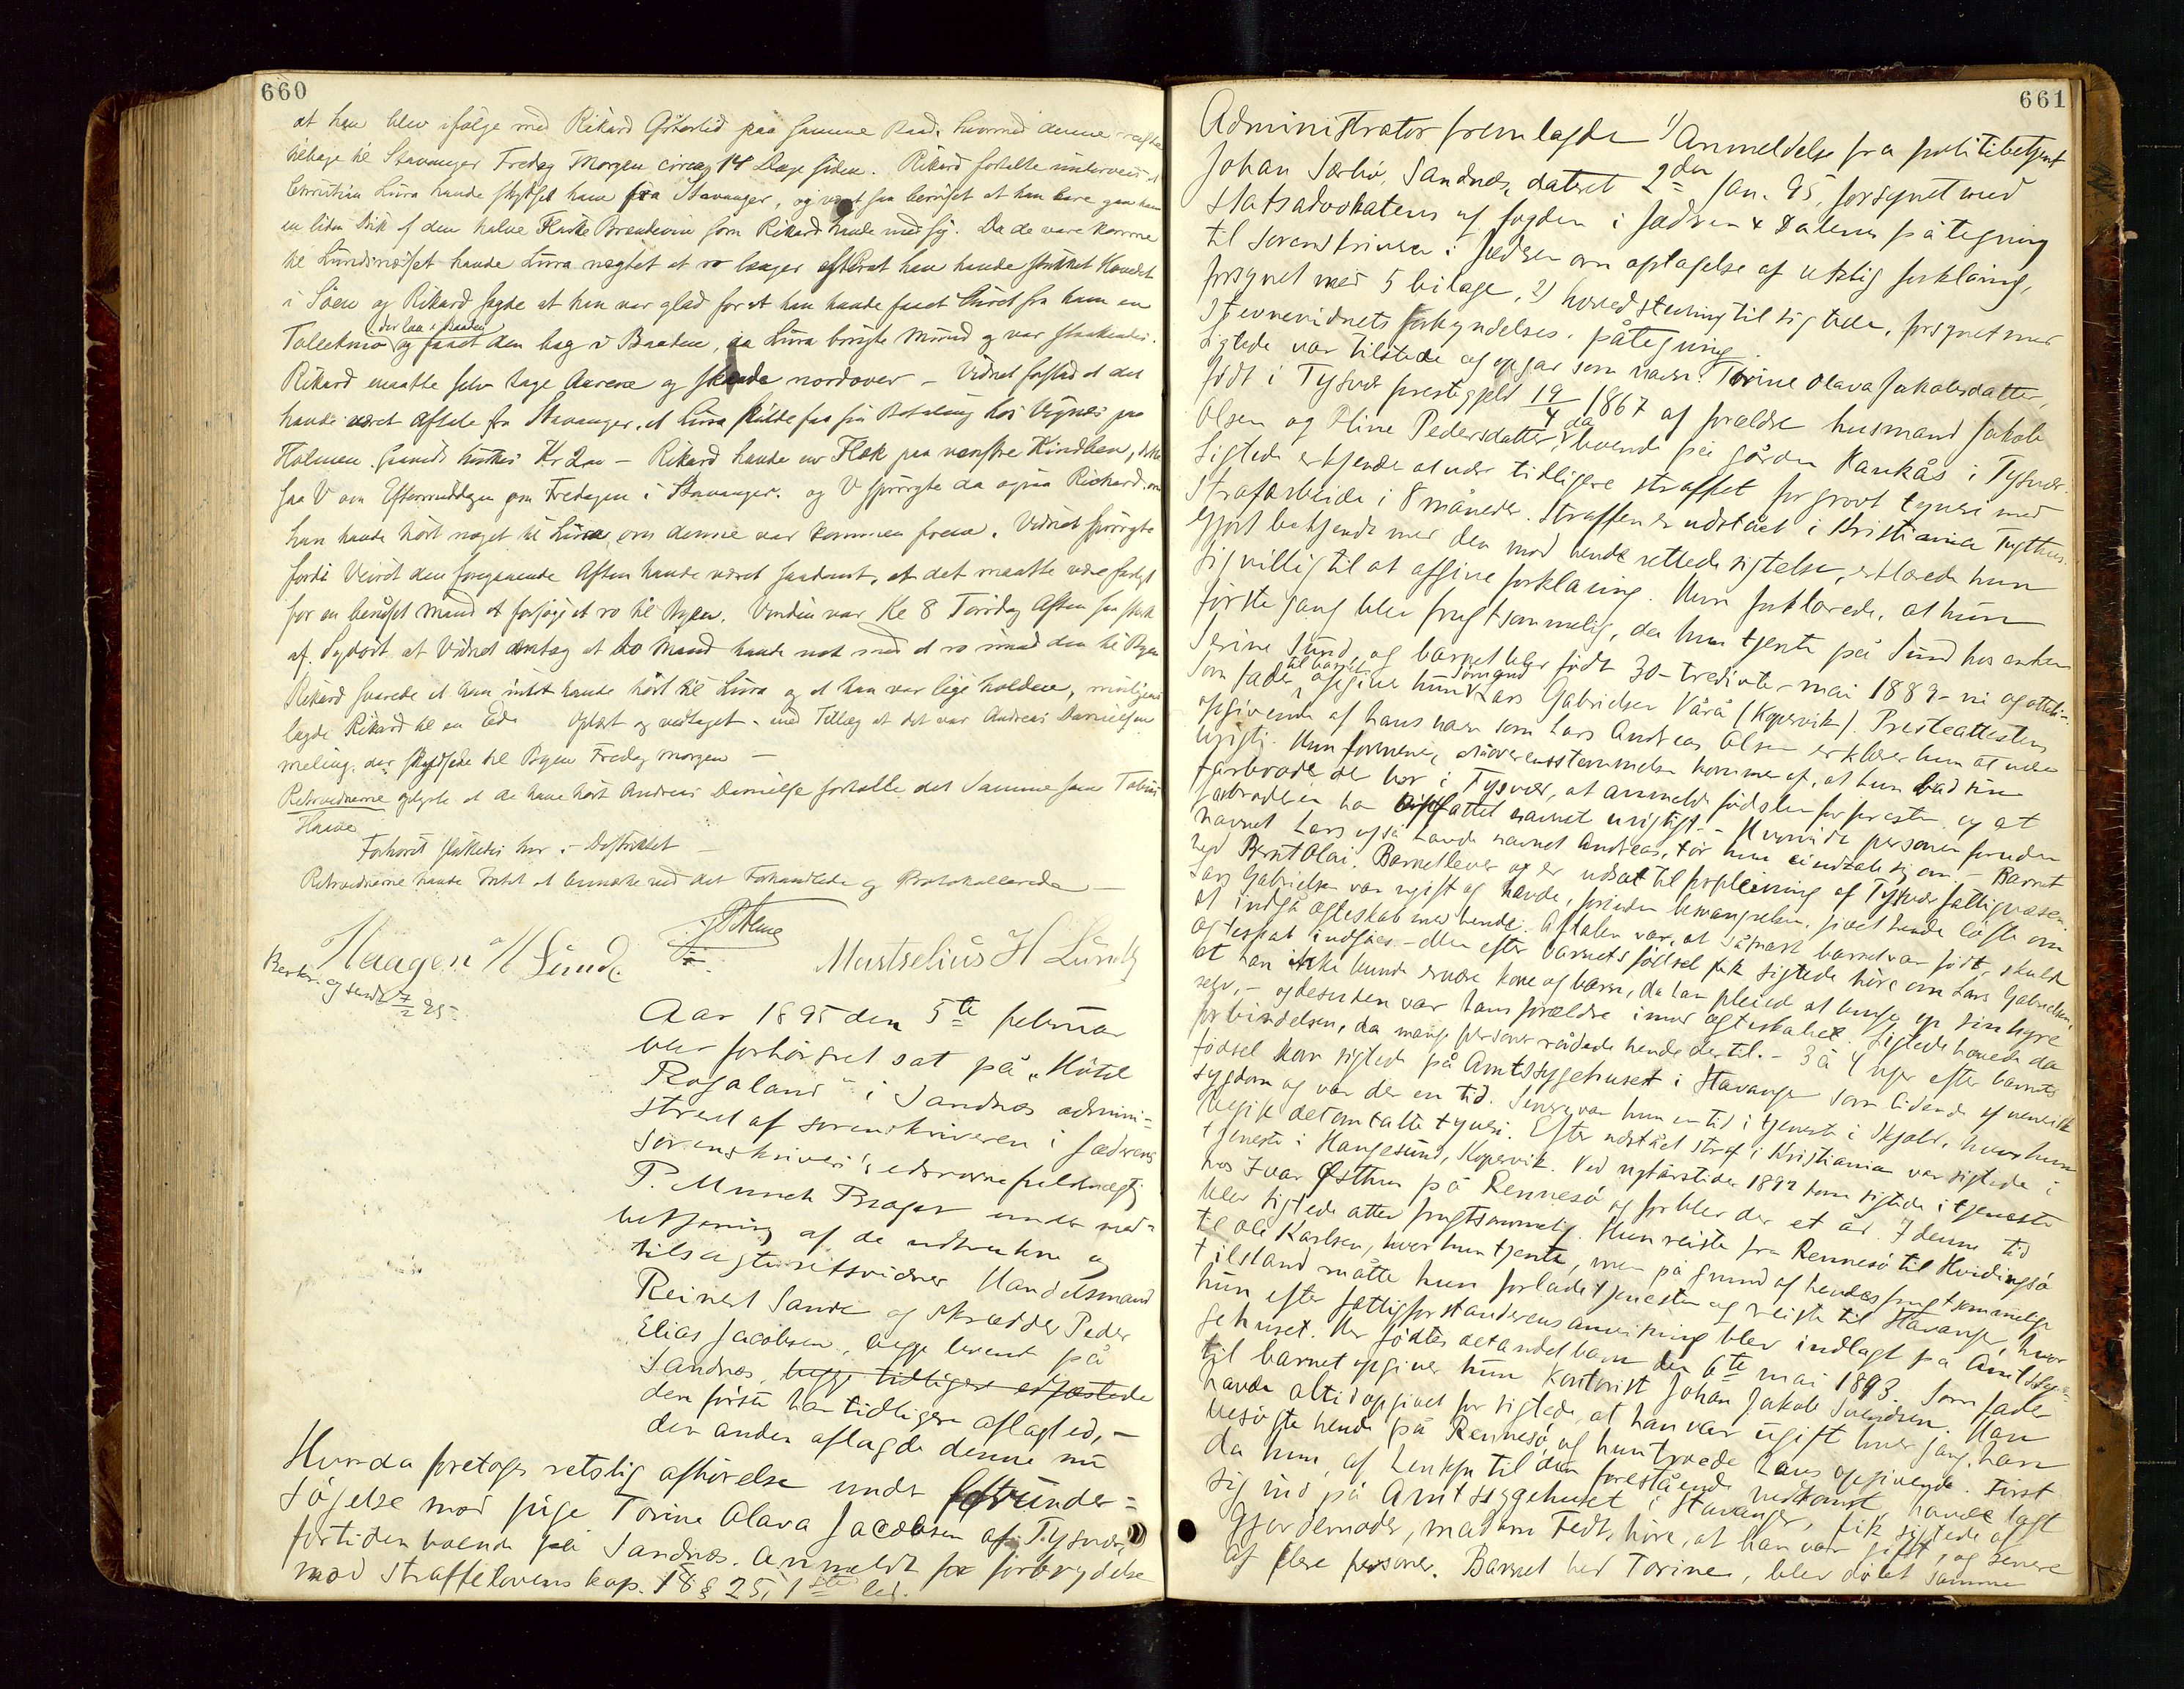 660
at han blev ifølge med Rikard Götorlid paa samme Baad hvormed denne reiste
tilbage til Stavanger Fredag Morgen circa 14 Dage siden. Rikard fortalte underveis at
Christian Lura havde skydset ham fra Stavanger, og været saa beruset at han bare gav ham
en liden Drik af den halve Flaske Brændevin som Rikard havde med sig. Da de vare komne
til Lundsneset havde Lura nægtet at ro længer efterat han havde stukket Hovedet
i Søen og Rikard sagde at han var glad for at han havde faaet fra ham en
Tollekniv der laa i Baaden og faaet den bag i Baaden, da Lura brugte Mund og var
Rikard maatte selv tage Aarene og nordover – Vidnet forstod at det
havde været Aftale fra Stavanger, at Lura skulde faa sin Betaling hos Vignes paa
Holmen Kr 2 – Rikard havde en Flæk paa venstre Kindben, dette
saa V om Eftermiddagen om Fredagen i Stavanger. og V spurgte da ogsaa Richard om
han havde hört noget til Lura om denne var kommen frem. Vidnet spurgte
fordi Veiret den foregaaende Aften havde været saadant, at det maatte være farligt
for en beruset Mand at forsöge at ro til Byen. Vinden var Kl 8 Torsdag Aften saa stærk
af Sydost at Vidnet antog at to Mand havde nok med at ro imod den til Byen
Rikard svarede at han intet havde hört til Lura og at han var lige holden,
lagde Rikard til en Ed. Oplæst og vedtaget – med Tillæg at det var Andreas Danielsen
meling, der skydsede til Byen Fredag morgen –
Retsvidnerne oplyste at de have hört Andreas Danielsen fortælle det Samme som Tobias
Hauve
Forhöret sluttedes her i Distriktet –
Retsvidnerne havde Intet at bemærke ved det Forhandlede og Protokollerede –
Haagen H Lunde Martselius H Lunde
Beskr. og sendt 7/2 95.
Aar 1895 den 5te februar
blev forhörsret sat på "Hôtel
Rogaland" i Sandnæs admini-
streret af sorenskriveren i Jæderens
sorenskriveri's edsvorne fuldmægtig
P. Munch Brager under med-
betjening af de udtrukne og
tilsagte retsvidner Handelsmand
Reinert Sande og skrædder Peder
Elias Jacobsen, begge boende på
Sandnæs, begge tidligere edfæstede
den förste har tidligere aflagt ed, –
den anden aflagde denne nu
Hvorda foretoges retslig afhörelse under efterunder-
sögelse mod pige Torine Olava Jacobsen af Tysvær,
fortiden boende på Sandnæs. Anmeldt for forbrydelse
mod Straffelovens kap. 18 § 25, 1ste led.
661
Administrator fremlagde 1) Anmeldelse fra politibetjent
Johan Særhö, Sandnæs, dateret 2den Jan. 95, forsynet med
Statsadvokatens og fogden i Jædren & Dalenes påtegning
til Sorenskriveren i Jædren om optagelse af retslig forklaring,
forsynet med 5 bilage, 2) hovedstevning til sigtede, forsynet med
Stevnevidnets forkyndelses-påtegning.
Sigtede var tilstede og opgav som navn: Torine Olava Jakobsdatter,
født i Tysvær prestegjeld 19/4 1867 af forældre husmand Jakob
Olsen og Eline Pedersdatter, da boende på gården Kaukås i Tysvær.
Sigtede erkjendte at være tidligere straffet for grovt tyveri med
Strafarbeide i 8 måneder. Straffen er udstået i Kristiania Tugthus.
Gjort bekjendt med den mod hende rettede sigtelse, erklærede hun
sig villig til at afgive forklaring. Hun forklarede, at hun
förste gang blev frugtsommelig, da hun tjente på Sund hos enken
Serine Sund, og barnet blev födt 30 – tredivte – mai 1889 – ni og otteti –
Som fader til barnet opgiver hun sömand Lars Gabrielsen Vårå (Kopervik). Presteattestens
opgivende af hans navn som Lars Andreas Olsen erklærer hun at være
urigtig. Hun formener, at uoverensstemmelsen kommer af, at hun bad sin
farbroder der bor i Tysvær, at anmelde födselen for presten, og at
farbroderen har opfattet navnet urigtigt. – Hvorvidt personen foruden
navnet Lars også havde navnet Andreas, tör hun ei udtale sig om. – Barnet
hed Berntolai. Barnet lever og er udsat til forpleining af Tysvær fattigvæsen.
Lars Gabrielsen var ugift og havde, forinden besvangrelsen, givet hende löfte om
at indgå ægteskab med hende. Aftalen var, at såsnart barnet var födt, skulde
ægteskab indgåes. – Men efter barnets födsel fik sigtede höre om Lars Gabrielsen,
at han ikke kunde ernære kone og barn, da han pleied at bruge op sin hyre
selv, – og desuden var hans forældre imod ægteskabet. Sigtede hævede da
forbindelsen, da mange personer rådede hende dertil. – 3 à 4 uger efter barnets
födsel kom sigtede på Amtssygehuset i Stavanger som lidende af venerisk
sygdom og var der en tid. Senere var hun en tid i tjeneste i Skjold, hvor hun
begik det omtalte tyveri. Efter udstået straf i Kristiania var sigtede i
tjeneste i Haugesund, Kopervik. Ved nytårstider 1892 kom sigtede i tjeneste
hos Ivar Østhus på Rennesö og forblev der et år. I denne tid
blev sigtede atter frugtsommelig. Hun reiste fra Rennesö til Hvidingsö
til Ole Karlsen, hvor hun tjente, men på grund af hendes frugtsommelige
tilstand måtte hun forlade tjenesten og reiste til Stavanger, hvor
hun efter fattigforstanderens anvisning blev indlagt på Amtssyge-
gehuset. Her födtes det andet barn den 6te mai 1893. Som fader
til barnet opgiver hun kontorist Johan Jakob Svendsen. Han
havde altid opgivet for sigtede, at han var ugift hver gang, han
besögte hende på Rennesö, og hun troede hans opgivende. Först
da hun, af hensyn til den forestående nedkomst havde lagt
sig ind på Amtssygehuset i Stavanger, fik sigtede af
Gjordemoder, madam Tedt, höre, at han var gift, og senere
af flere personer. Barnet hed Torine, blev döbt samme